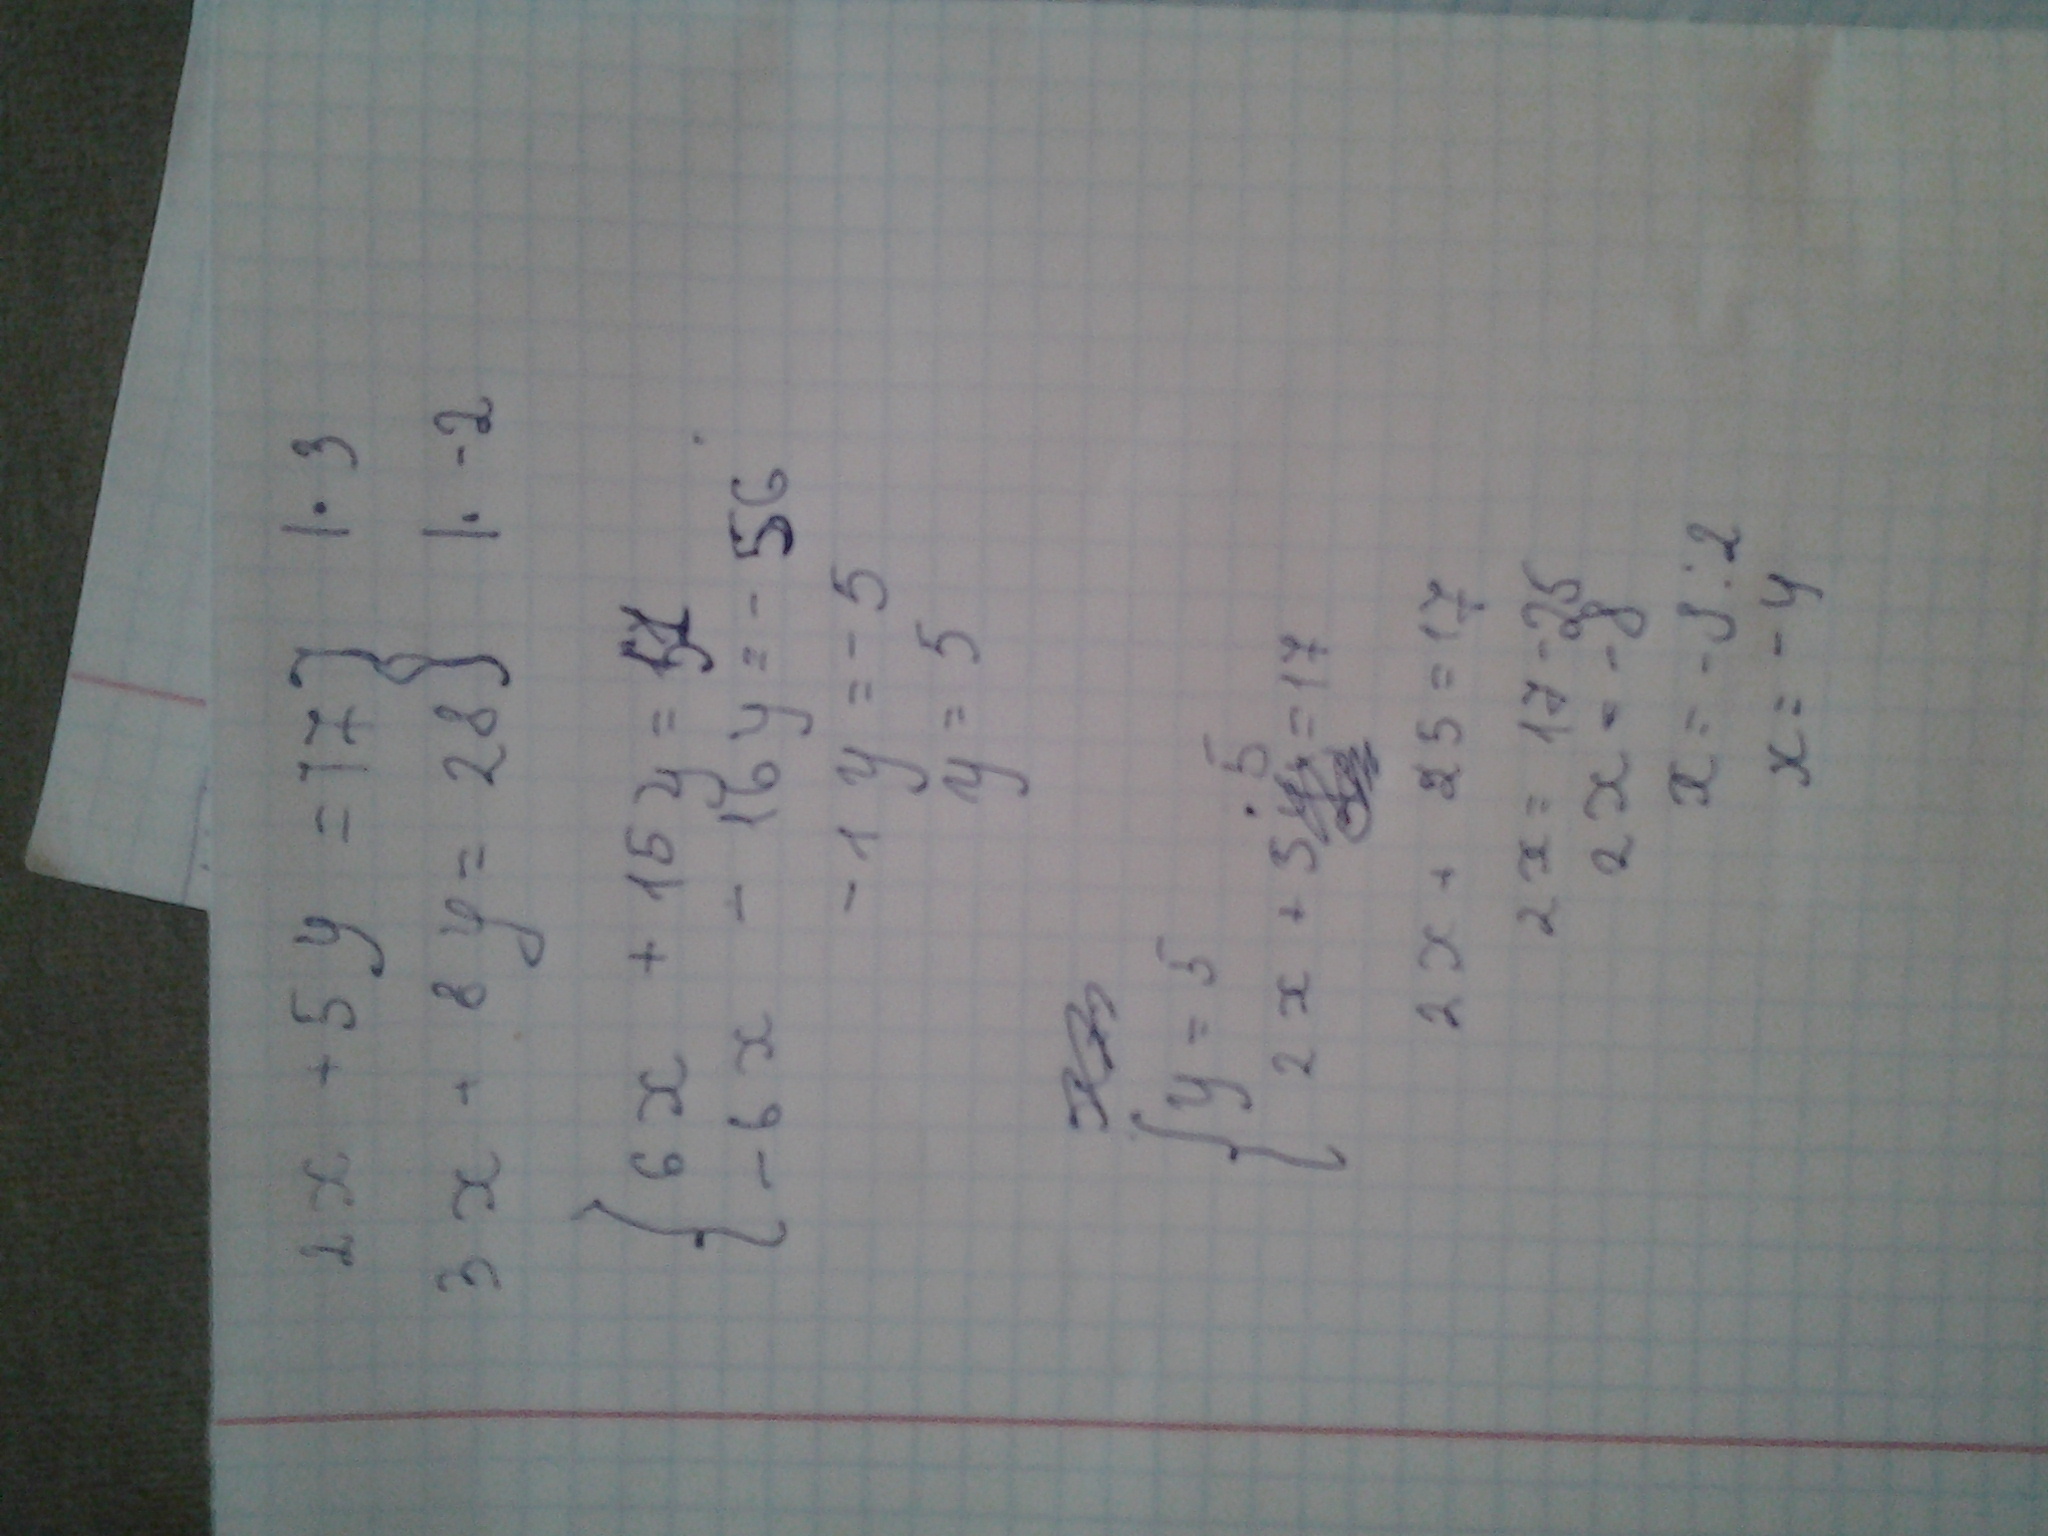 2x + 5y = 17} |· 3
3x + 8y = 28} |· -2
{6x + 15y = 51
-6x - 16y = -56
-1y = -5
y = 5
{y = 5
2x + 5 · 5 = 17
2x + 25 = 17
2x = 17 - 25
2x = -8
x = -8 : 2
x = -4